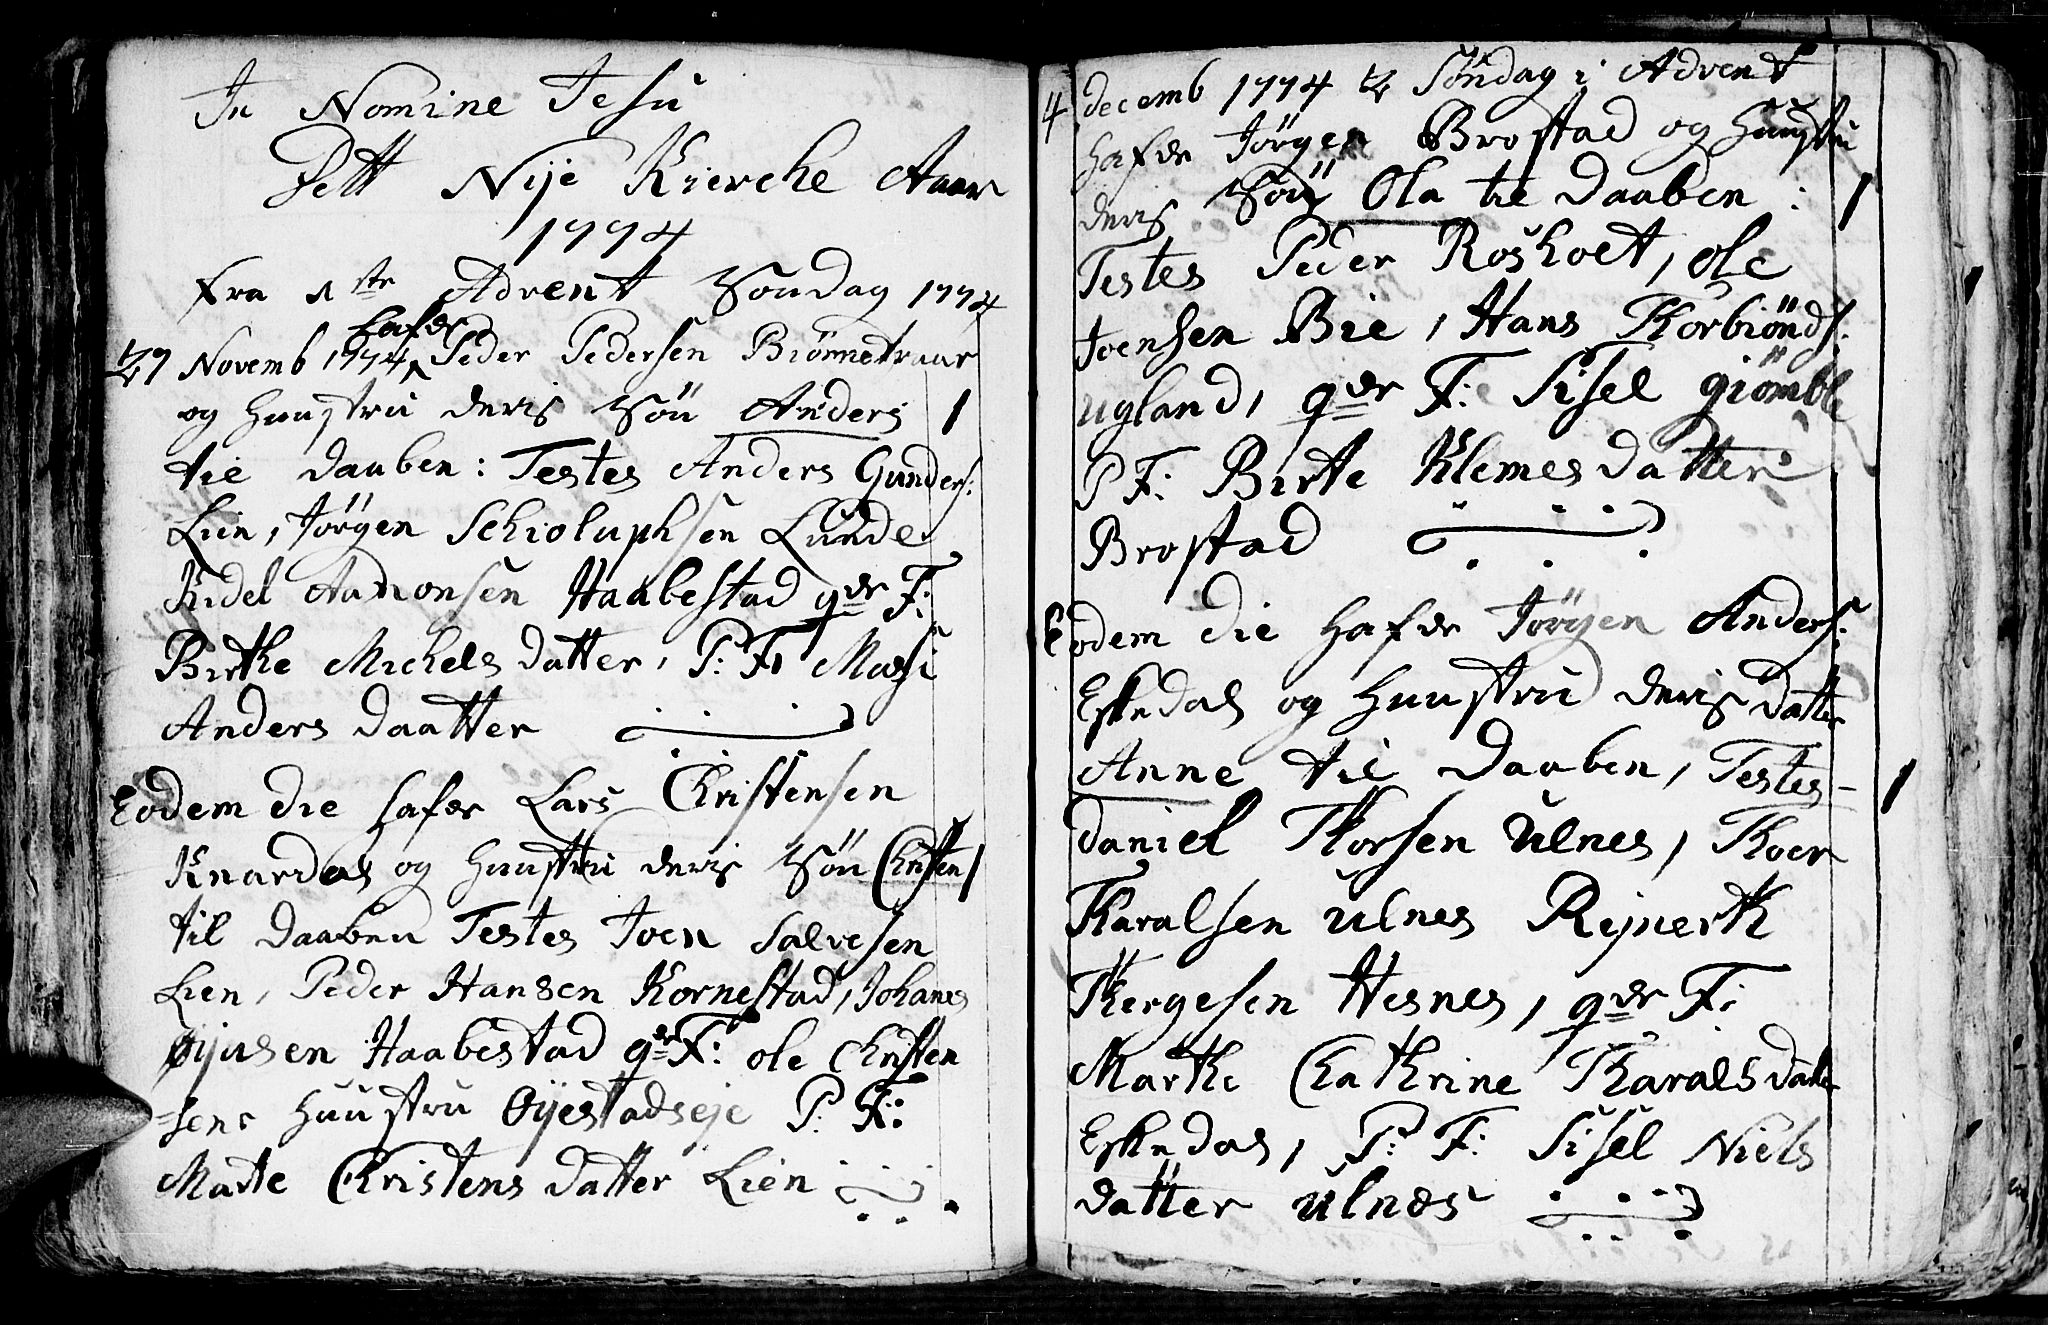 In Nomine Jesu
Dett Nye Kierche Aaar
1774
fra 1ste Advent Sondag 1774
hafde
27 Novemb 1774 Peder Pedersen Biönnetraar
og Huustru deris Sön Anders 1
til daaben: Testes Anders Gunders:
Lien, Jörgen Schioluphsen Lunde
Kidel Aamonsen Haabestad gdr F:
Birthe Michels datter, P: F: Massi
Anders daatter
Eodem die hafde Lars Christensen
Knardal og Huustru deris Sön Christen 1
til daaben Testes Joen Salvesen
Lien, Peder Hansen Kornestad, Johanes
Öyusen Haabestad gdr F: ole Christen
=sens Huustru Öyestadseje P: F:
Marte Christens datter Lien
4 decemb 1774 2 Söndag i Advent
hafde Jörgen Brostad og Huustru
deris Sön Ola til daaben: 1
Testes Peder Rosholt, ole
Joensen Bie, Hans Thorbiönds:
ugland, gdr F: Sisel giömble
P F: Birte Klemesdatter
Brostad
Eodem die hafde Jörgen Anders:
Eskedal og Huustru deris datter
Anne til daaben, Testes 1
Daniel Thorsen Ulnes, Thoer
Tharalsen Ulnes Rejnerth
Thergesen Hesnes, gdr F:
Marthe Cathrine Tharalsdatter
Eskedal, P: F: Sisel Niels
datter Ulnes